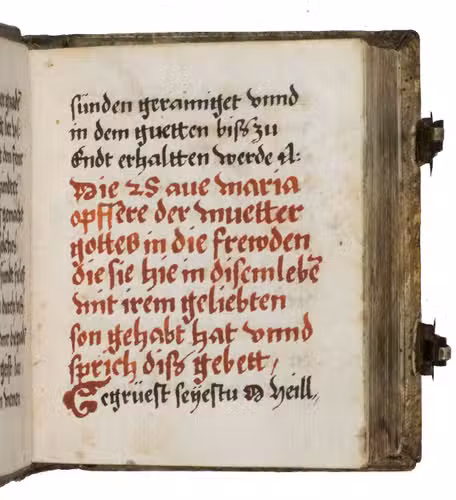 sünden gerainiget vnnd
in dem guetten bißzu
Endt erhaltten werde A:
Die 25 aue maria
opffere der muetter
gottes in die frewden
die sie hie in disem lebē
mit irem geliebten
son gehabt hat vnnd
sprich diß gebett,
Gegrüest seÿestu O heill,